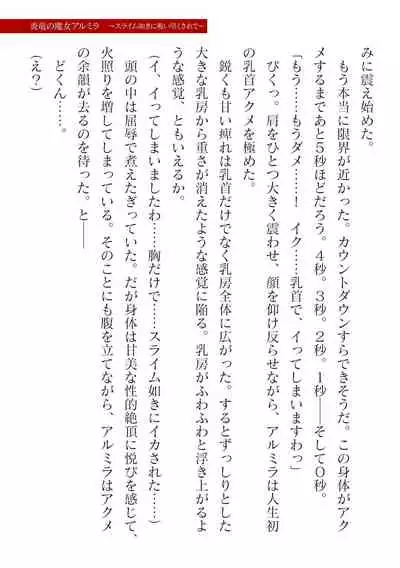 炎竜の魔女アルミラ　～スライム如きに吸い尽くされて～
みに震え始めた。
　もう本当に限界が近かった。カウントダウンすらできそうだ。この身体がアク
メするまであと５秒ほどだろう。４秒。３秒。２秒。１秒――そして０秒。
「もう……もうダメ……！　イク……乳首で、イってしまいますわっ」
　びくっ。肩をひとつ大きく震わせ、顔を仰け反らせながら、アルミラは人生初
の乳首アクメを極めた。
　鋭くも甘い痺れは乳首だけでなく乳房全体に広がった。するとずっしりとした
大きな乳房から重さが消えたような感覚に陥る。乳房がふわふわと浮き上がるよ
うな感覚、ともいえるか。
（イ、イってしまいましたわ……胸だけで……スライム如きにイカされた……）
　頭の中は屈辱で煮えたぎっていた。だが身体は甘美な性的絶頂に悦びを感じて、
火照りを増してしまっている。そのことにも腹を立てながら、アルミラはアクメ
の余韻が去るのを待った。と――
　どくん……。
（え？）